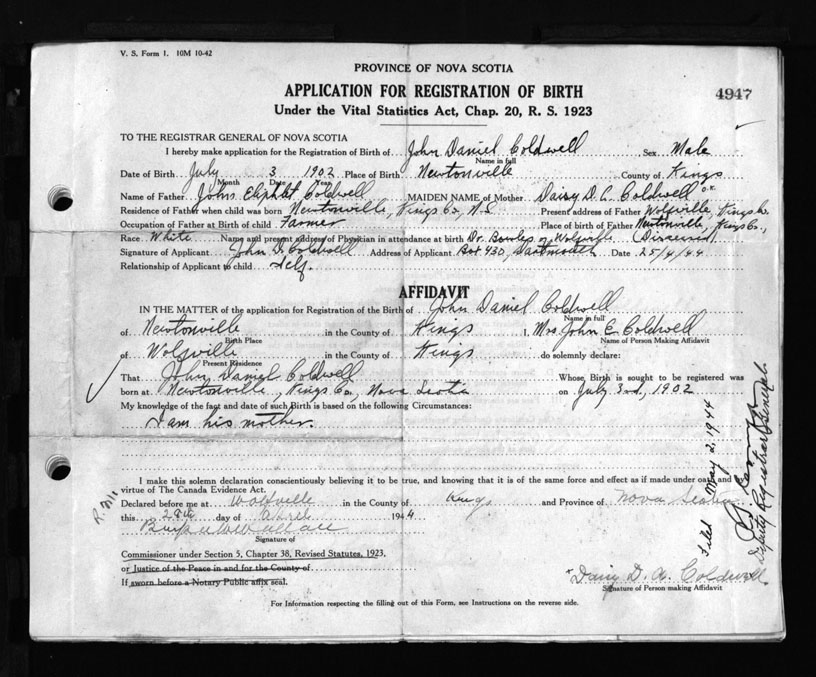 V. S. Form 1. 10M 10-42
PROVINCE OF NOVA SCOTIA
APPLICATION FOR REGISTRATION OF BIRTH
4947
Under the Vital Statistics Act, Chap. 20, R. S. 1923
TO THE REGISTRAR GENERAL OF NOVA SCOTIA
I hereby make application for the Registration of Birth of John Daniel Coldwell Sex Male
Name in full
Date of Birth July 3 1902 Place of Birth Newtonville County of Kings
Month Date Year
Name of Father John Coldwell MAIDEN NAME of Mother Daisy D. Coldwell O.K.
Residence of Father when child was born Newtonville, Kings Co., N.S. Present address of Father Wolfville, Kings Co.
Occupation of Father at Birth of child Farmer Place of birth of Father Newtonville, Kings Co.,
Race White Name and present address of Physician in attendance at birth Dr. Bowles of Wolfville (Deceased)
Signature of Applicant John D. Coldwell Address of Applicant Box 430, Dartmouth Date 25/4/44
Relationship of Applicant to child Self.
AFFIDAVIT
IN THE MATTER of the application for Registration of the Birth of John Daniel Coldwell
Name in full
of Newtonville in the County of Kings I, Mrs. John E. Coldwell
Birth Place Name of Person Making Affidavit
of Wolfville in the County of Kings do solemnly declare:
Present Residence
That John Daniel Coldwell Whose Birth is sought to be registered was
born at Newtonville, Kings Co., Nova Scotia on July 3rd, 1902
My knowledge of the fact and date of such Birth is based on the following Circumstances:
I am his mother.
I make this solemn declaration conscientiously believing it to be true, and knowing that it is of the same force and effect as if made under oath and by
virtue of The Canada Evidence Act.
Declared before me at Wolfville in the County of Kings and Province of Nova Scotia
this 28th day of April 1944
Signature of
Commissioner under Section 5, Chapter 38, Revised Statutes, 1923.
or Justice of the Peace in and for the County of
If sworn before a Notary Public affix seal.
Daisy D. A. Coldwell
Signature of Person making Affidavit
For Information respecting the filling out of this Form, see Instructions on the reverse side.
Filed May 2, 1944
Deputy Registrar General.